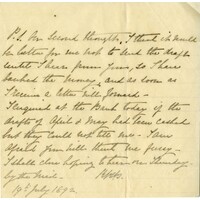 P.S. On second thoughts, I think it would
be better for me not to send the draft
until I hear from you, so I have
banked the money, and as soon as
I receive a letter will forward -
I enquired at the Bank today if the
drafts of April & May had been cashed
but they could not tell me - I am
afraid you will think me fussy -
I shall close hoping to hear on Thursday
by the Mail.
19th July 1892